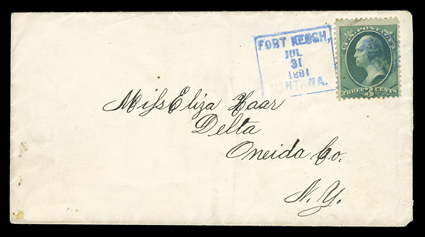 FORT KEOGH,
JUL
31
1881
MONTANA.
U.S. POSTAGE
THREE 3 CENTS
Miss Eliza Haar
Delta
Oneida Co.
N.Y.